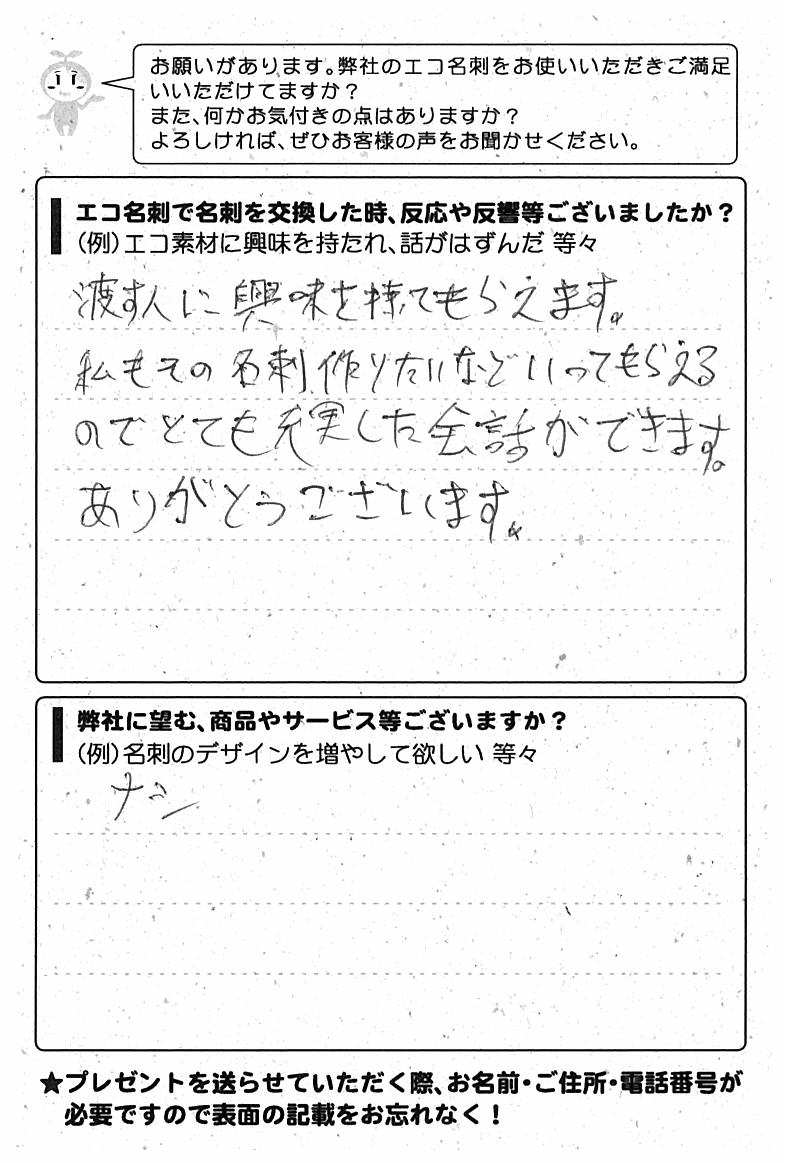 お願いがあります。弊社のエコ名刺をお使いいただきご満足
いいただけてますか？
また、何かお気付きの点はありますか？
よろしければ、ぜひお客様の声をお聞かせください。
エコ名刺で名刺を交換した時、反応や反響等ございましたか？
（例）エコ素材に興味を持たれ、話がはずんだ 等々
渡す人に興味を持ってもらえます。
私もその名刺作りたいなどいってもらえる
のでとても充実した会話ができます。
ありがとうございます。
弊社に望む、商品やサービス等ございますか？
（例）名刺のデザインを増やして欲しい 等々
ナシ
★プレゼントを送らせていただく際、お名前・ご住所・電話番号が
必要ですので表面の記載をお忘れなく！